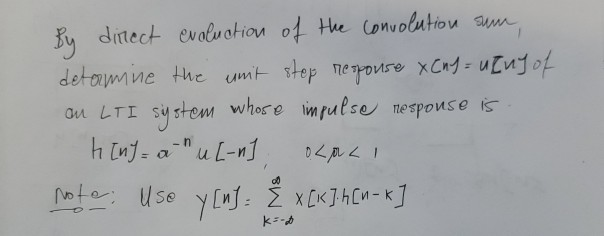 By direct evaluation of the convolution sum,
determine the unit step response x[n] = u[n] of
an LTI system whose impulse response is
h[n] = a⁻ⁿ u[-n], 0<a< 1
Note: Use y[n] = ∞Σk=-∞ x[k].h[n-k]